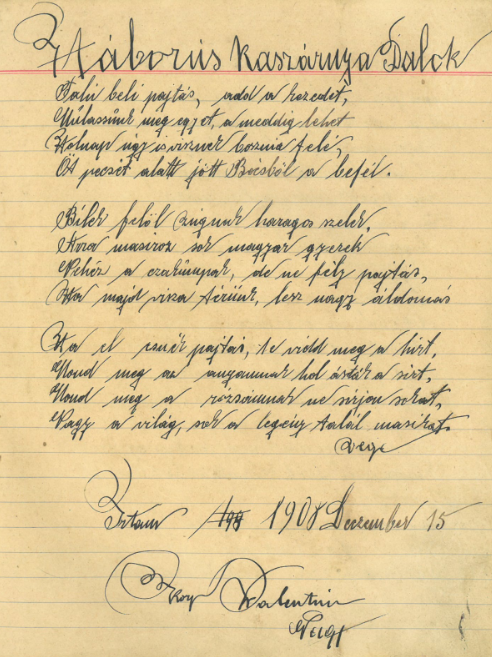 Háborús kaszárnya Dalok
Falu beli pajtás, add a kezedet,
Mulassunk meg egyet, a meddig lehet
Holnap úgy is visznek bosznia felé,
Öt pecsét alatt jött Bécsből a befél.
Bilek felöl zúgnak haragos szelek,
Arra masiroz sok magyar gyerek
Nehéz a czakúnpak, de ne félj pajtás,
Ha majd visza térünk, lesz nagy áldomás
Ha el esnék pajtás, te vidd meg a hírt,
Mond meg az anyámnak hol ásták a sírt,
Mond meg a rózsámnak ne sírjon sokat,
Nagy a világ, sok a legény talál masikat.
Vége
Irtam 1908 Deczember 15
Valentin